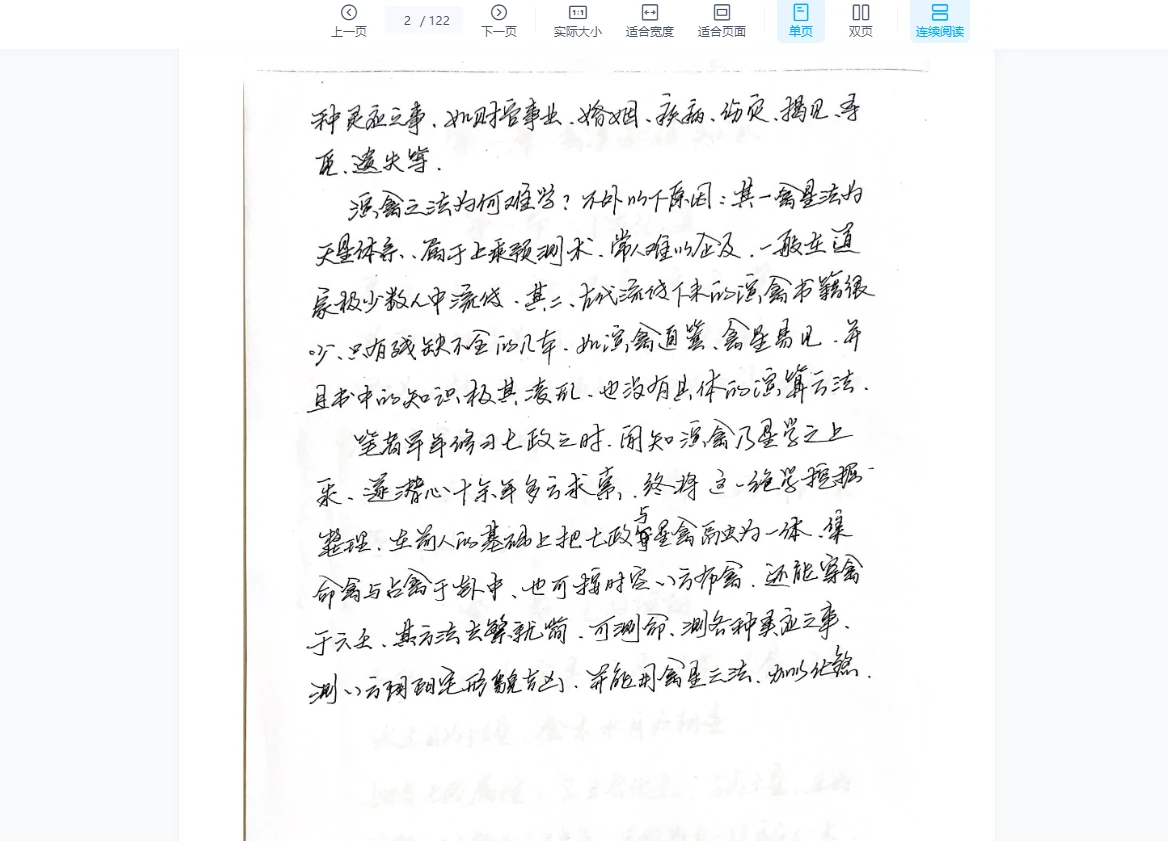 上一页
2 / 122
下一页
1:1
实际大小
适合宽度
适合页面
单页
双页
连续阅读
种灵应之事、如财官事业、婚姻、疾病、伤灾、揭见、寻
匿、遗失等.
演禽之法为何难学？不外以下原因：其一禽星法为
天星体系、属于上乘预测术、常人难以企及.一般在道
家极少数人中流传.其二、古代流传下来的演禽书籍很
少、只有残缺不全的几本.如演禽通纂、禽星易见.并
且书中的知识极其凌乱、也没有具体的演算方法.
笔者早年修习七政之时.闻知演禽乃星学之上
乘、遂潜心十余年多方求索，终将这一绝学挖掘
整理.在前人的基础上把七政与星禽融为一体.集
命禽与占禽于卦中、也可按时空八方布禽.还能穿禽
于六壬、其方法去繁就简.可测命、测各种灵应之事、
测八方阴阳宅形貌吉凶.并能用禽星之法、加以化煞.